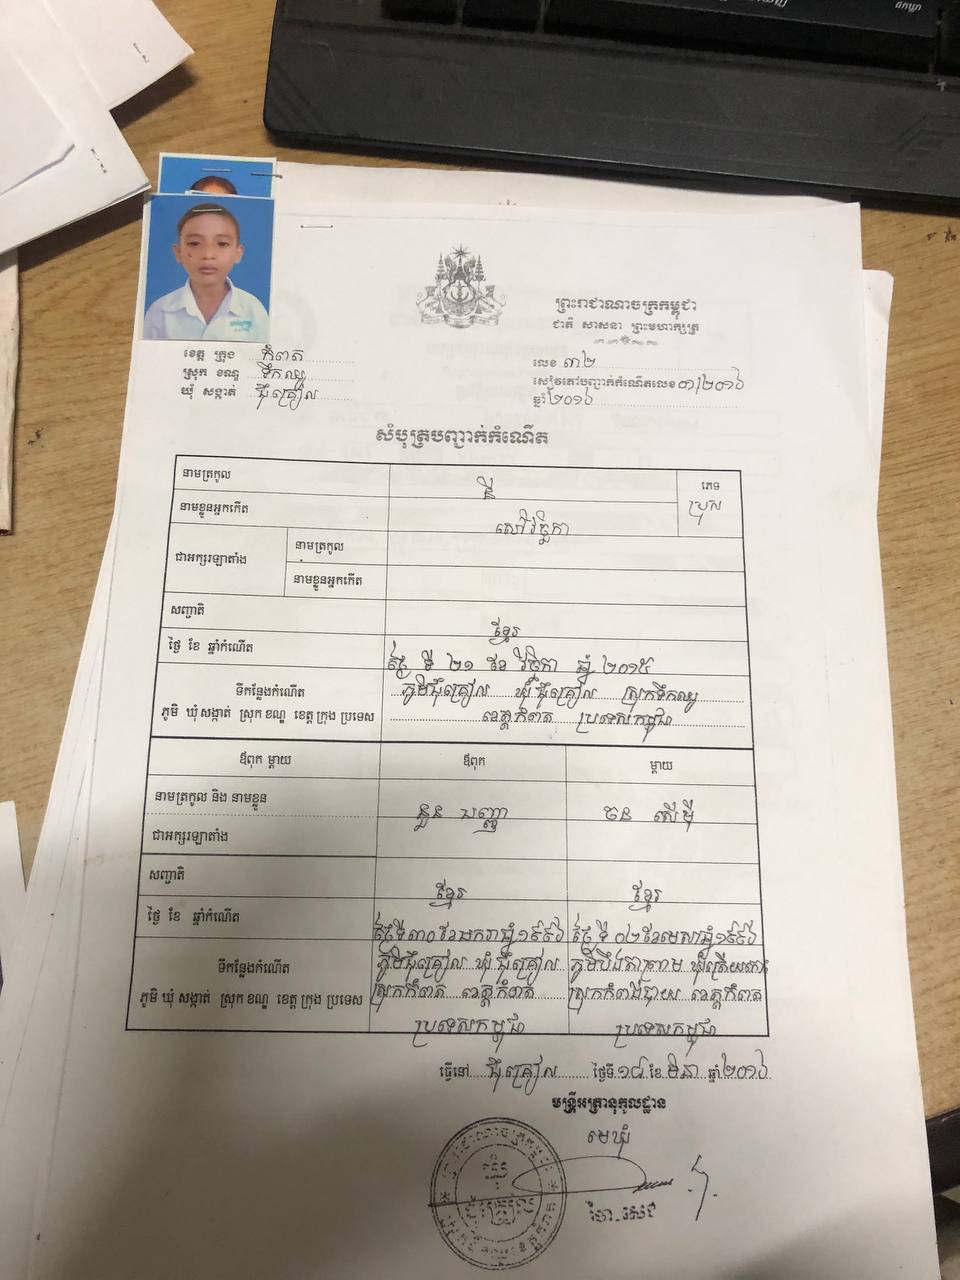 ព្រះរាជាណាចក្រកម្ពុជា
ជាតិ សាសនា ព្រះមហាក្សត្រ
ខេត្ត ក្រុង កំពត
ស្រុក ខណ្ឌ ទឹកឈូ
ឃុំ សង្កាត់ ជុំគ្រៀល
លេខ ៣២
សៀវភៅបញ្ជាក់កំណើតលេខ ០១/២០១៦
ឆ្នាំ ២០១៦
សំបុត្របញ្ជាក់កំណើត
នាមត្រកូល
ភេទ
ប្រុស
នាមខ្លួនអ្នកកើត
ជាអក្សរឡាតាំង
នាមត្រកូល
នាមខ្លួនអ្នកកើត
សញ្ជាតិ ខ្មែរ
ថ្ងៃ ខែ ឆ្នាំកំណើត ថ្ងៃ ទី ២១ ខែ វិច្ឆិកា ឆ្នាំ ២០១៥
ទីកន្លែងកំណើត
ភូមិ ឃុំ សង្កាត់ ស្រុក ខណ្ឌ ខេត្ត ក្រុង ប្រទេស
ភូមិជុំគ្រៀល ឃុំជុំគ្រៀល ស្រុកទឹកឈូ
ខេត្តកំពត ប្រទេសកម្ពុជា
ឪពុក ម្តាយ ឪពុក ម្តាយ
នាមត្រកូល និង នាមខ្លួន នួន បញ្ញា ចាន់ ស៊ើម៉ី
ជាអក្សរឡាតាំង
សញ្ជាតិ ខ្មែរ ខ្មែរ
ថ្ងៃ ខែ ឆ្នាំកំណើត ថ្ងៃទី៣០ ខែមករា ឆ្នាំ១៩៩៦ ថ្ងៃ ទី ០២ ខែមេសា ឆ្នាំ១៩៩៦
ទីកន្លែងកំណើត
ភូមិ ឃុំ សង្កាត់ ស្រុក ខណ្ឌ ខេត្ត ក្រុង ប្រទេស
ភូមិជុំគ្រៀល ឃុំ ជុំគ្រៀល
ស្រុកកំពត ខេត្តកំពត
ប្រទេសកម្ពុជា
ខេត្តកំពត
ប្រទេសកម្ពុជា
ធ្វើនៅ ជុំគ្រៀល ថ្ងៃទី ១៨ ខែ មិនា ឆ្នាំ ២០១៦
មន្ត្រីអត្រានុកូលដ្ឋាន
មេឃុំ